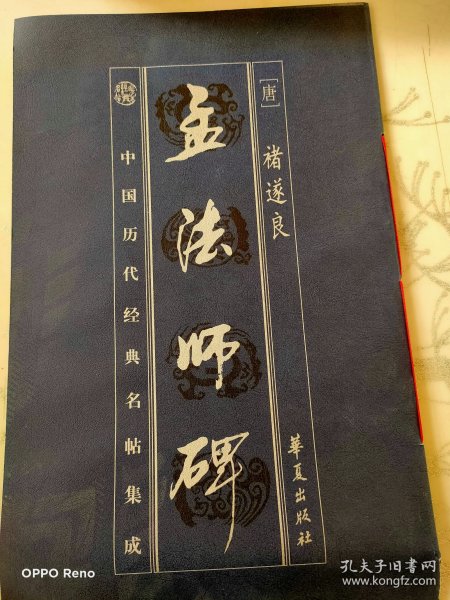 [唐]
褚遂良
華夏出版社
孟法师碑
中国历代经典名帖集成
OPPO Reno
孔夫子旧书网
www.kongfz.com